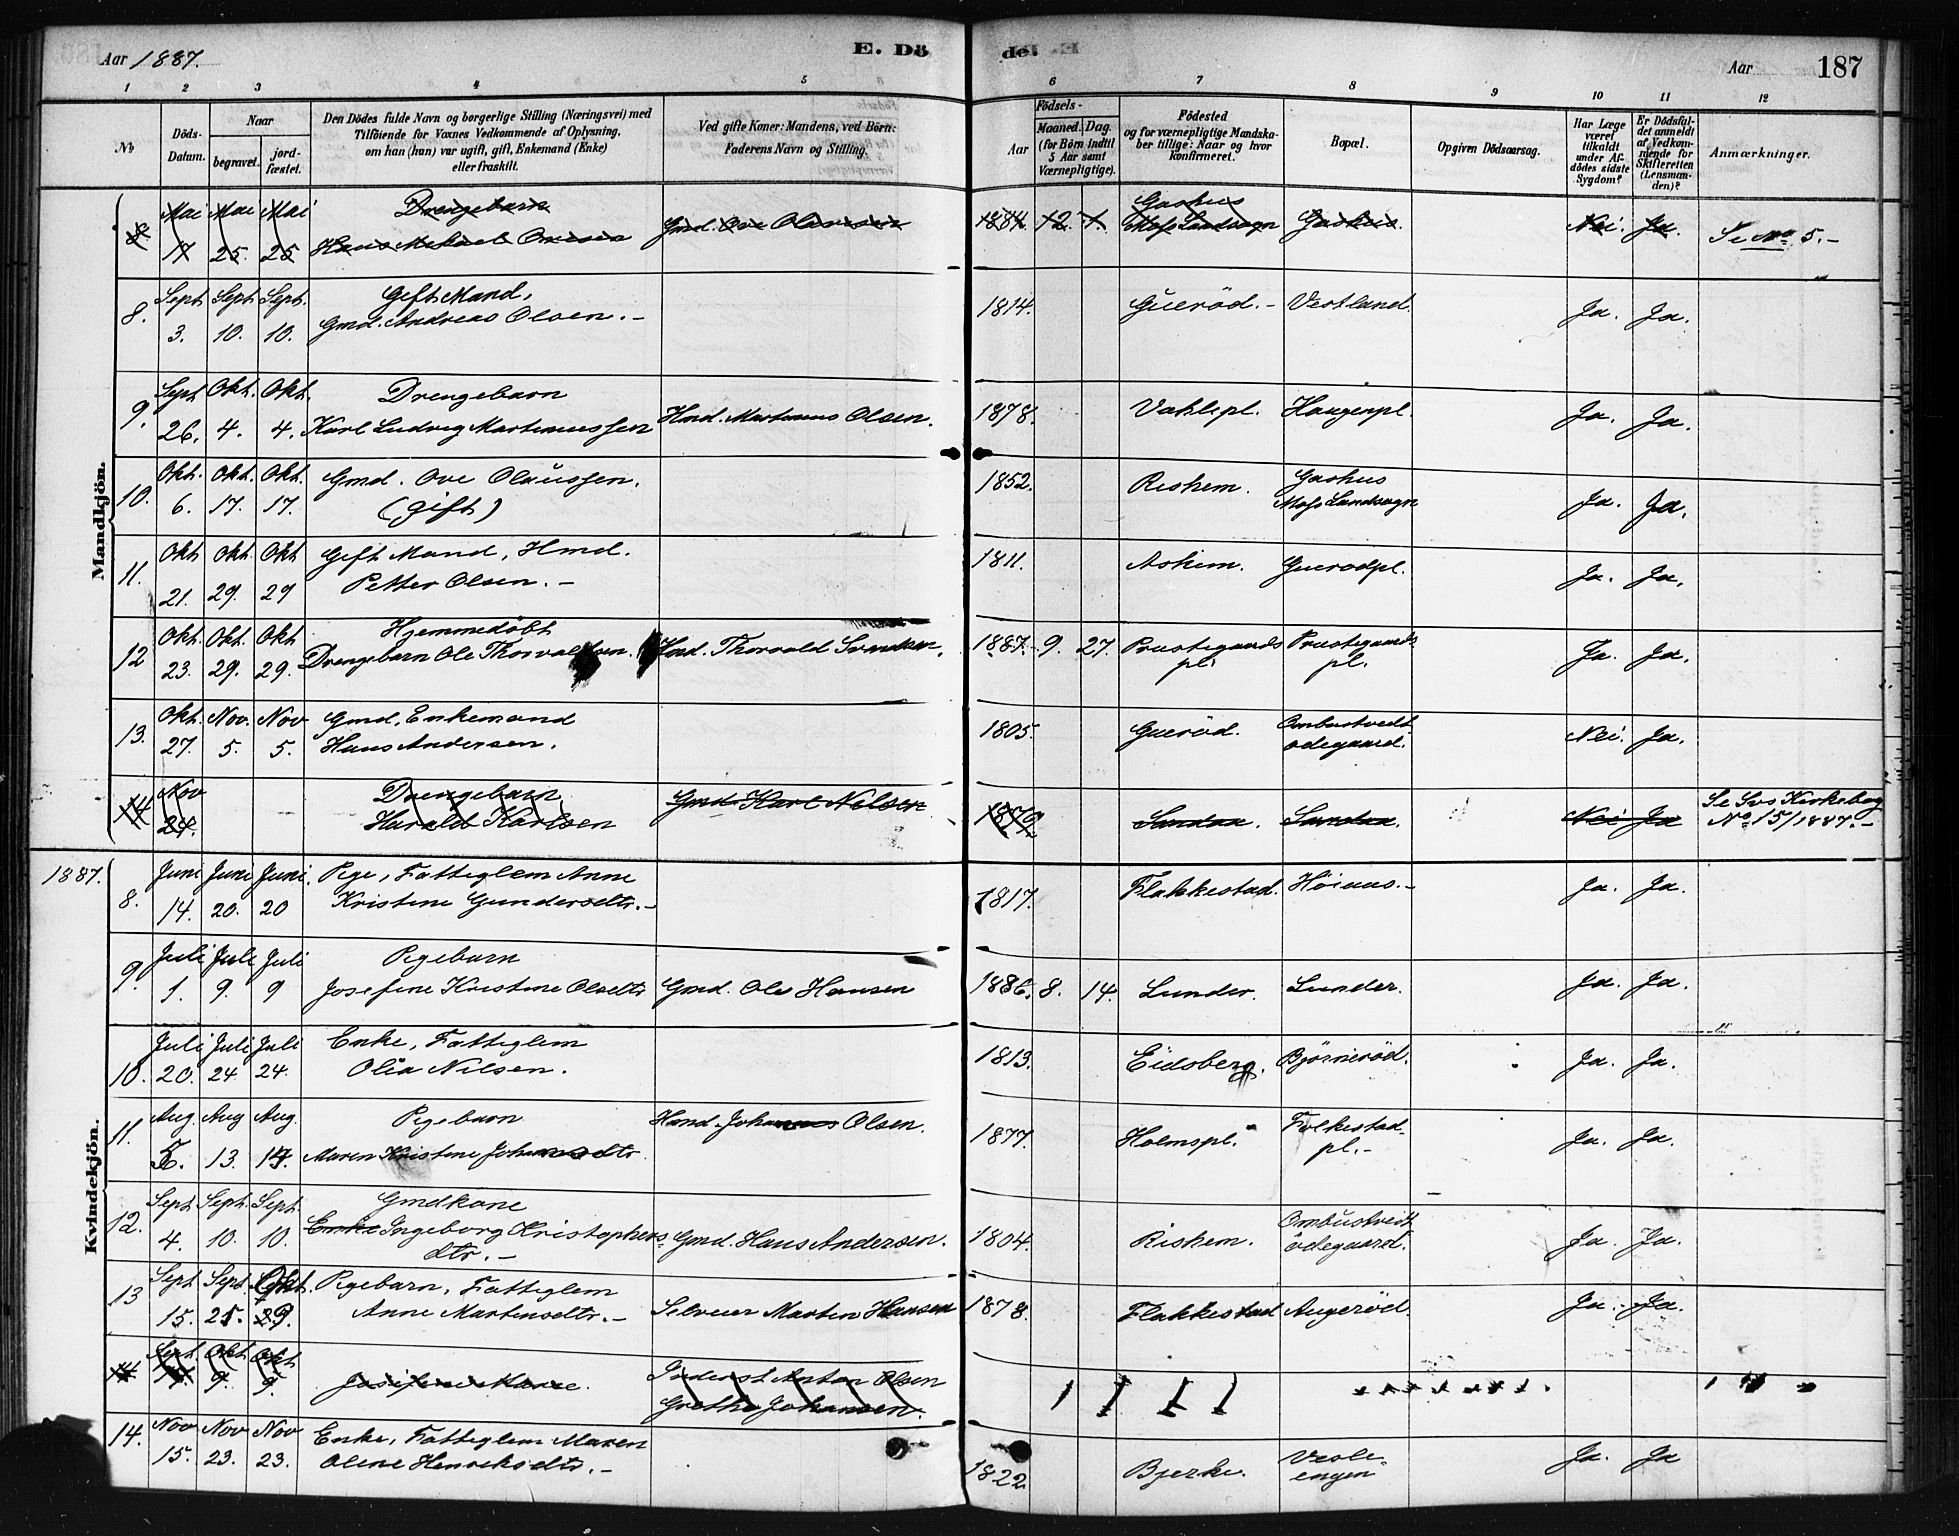 Aar 1887. E. Dö de. Aar 187
1 2 3 4 5 6 7 8 9 10 11 12
No. Döds-Datum. Naar begravet. jord-fæstet. Den Dödes fulde Navn og borgerlige Stilling (Næringsvei) med Tilföiende for Voxnes Vedkommende af Oplysning, om han (hun) var ugift, gift, Enkemand (Enke) eller fraskilt. Ved gifte Koner: Mandens, ved Börn: Faderens Navn og Stilling. Födsels- Aar Maaned. Dag. (for Börn indtil 5 Aar samt Værnepligtige). Födested og for værnepligtige Mandska-ber tillige: Naar og hvor konfirmeret. Bopæl. Opgiven Dödsaarsag. Har Læge været tilkaldt under Af-dödes sidste Sygdom? Er Dödsfal-det anmeldt af Vedkom-mende for Skifteretten (Lensman-den)? Anmærkninger.
Mandkjön.
8. Mai 17 Mai 25. Mai 25 Drengebarn Hans Mikael Ovesen Gmd. Ove Olaussen 1884. 12. Gashus Moss Landsogn Gashus. Nei. Ja. Se No. 5.-
8. Sept 3. Sept 10. Sept. 10. Gift Mand, Gmd. Andreas Olsen.- 1814. Gueröd.- Vestland. Ja. Ja.
9. Sept 26. Okt. 4. Okt. 4. Drengebarn Karl Ludvig Martinussen Hmd. Martinus Olsen. 1878. Vahlepl. Haugenpl. Ja. Ja.
10. Okt. 6. Okt 17. Okt. 17. Gmd. Ove Olaussen. (gift) 1852. Reshem. Gashus Moss Landsogn Ja. Ja.
11. Okt 21. Okt 29. Okt 29 Gift Mand, Hmd. Petter Olsen.- 1811. Askim. Guerodpl. Ja. Ja.
12 Okt. 23. Okt. 29. Okt 29. Hjemmedöbt Drengebarn Ole Thorvaldsen. Hmd. Thorvald Svendsen. 1887. 9. 27. Prestegaards pl. Prestegaards pl. Ja. Ja.
13. Okt. 27. Nov. 5. Nov 5. Gmd, Enkemand Hans Andersen. 1805. Gueröd. Ombustvedt ödegaard. Nei. Ja.
14 Nov 24. Drengebarn Harald Karlsen Gmd Karl Nelsen 1879 Sandaa. Sandaa. Nei Ja Se Svs Kirkebog No. 15/1887.-
1887.
Kvindekjön.
8. Juni 14. Juni 20. Juni. 20 Pige, Fattiglem Anne Kristine Gundersdtr.- 1817. Flakkestad. Höiaas.- Ja. Ja.
9. Juli 1. Juli 9. Juli 9 Pigebarn Josefine Kristine Olsdtr Gmd. Ole Hansen 1886. 8. 14. Lunder. Lunder. Ja. Ja.
10. Juli 20. Juli 24. Juli 24. Enke, Fattiglem Olia Nilsen. 1813. Eidsberg. Björneröd. Ja. Ja.
11. Aug. 5. Aug 13. Aug. Pigebarn Maren Kristine Johannesdtr. Hmd. Johannes Olsen. 1877. Holmspl. Folkestad-pl.- Ja. Ja.
12. Sept 4. Sept. 10. Sept. 10. Gmdkone Enke Ingeborg Kristophers-dtr.- Gmd. Hans Andersen. 1804. Riskem. Ombustvedt ödegaard. Ja. Ja.
13 Sept 15. Sept 25. Okt. Pigebarn, Fattiglem Anne Martinsdtr.- Selveier Martin Hansen 1878. Flakkestad Augeröd. Ja. Ja.
14 Sept. Okt 9. Okt 9. Josefine Marie. Inderst Anton Olsen Grethe Johansen.
14. Nov 15. Nov 23. Nov 23. Enke, Fattiglem Maren Oline Henriksdtr.- 1822 Bjerke. Vesle-engen Ja. Ja